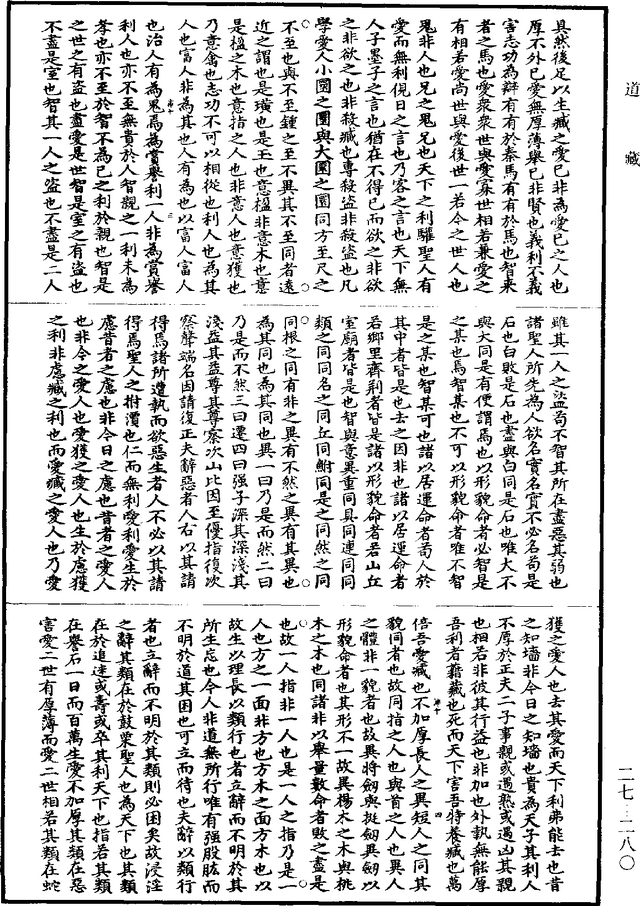 道藏
具然後足以生臧之愛已非為愛已之人也
厚不外已愛無厚薄舉已非賢也義利不義
害志功為辯有有於秦馬有有於馬也智來
者之馬也愛衆衆世與愛寡世相若兼愛之
有相若愛尚世與愛後世一若今之世人也
鬼非人也兄之鬼兄也天下之利驩聖人有
愛而無利俔日之言也乃客之言也天下無
人子墨子之言也猶在不得已而欲之非欲
之非欲之也非殺臧也專殺盜非殺盜也凡
學愛人小圜之圜與大圜之圜同方至尺之
不至也與不至鍾之至不異其不至同者遠
近之謂也是璜也是玉也意楹非意木也意
是楹之木也意指之人也非意人也意獲也
乃意禽也志功不可以相從也利人也為其
人也富人非為其也人有為也以富人富人
也治人有為鬼焉為賞譽利一人非為賞譽
利人也亦不至無貴於人智親之一利未為
孝也亦不至於智不為已之利於親也智是
之世之有盜也盡愛是世智是室之有盜也
不盡是室也智其一人之盜也不盡是二人
雖其一人之盜苟不智其所在盡惡其弱也
諸聖人所先為人欲名實名實不必名苟是
石也白敗是石也盡與白同是石也唯大不
與大同是有便謂焉也以形貌命者必智是
之某也焉智某也不可以形貌命者唯不智
是之某也智某可也諸以居運命者苟人於
其中者皆是也去之因非也諸以居運命者
若鄉里齊荆者皆是諸以形貌命者若山丘
室廟者皆是也智與意異重同具同連同同
類之同同名之同丘同鮒同是之同然之同
同根之同有非之異有不然之異有其異也
為其同也為其同也異一曰乃是而然二曰
乃是而不然三曰遷四曰强子深其深淺其
淺益其益尊其尊察次山比因至優指復次
察聲端名因請復正夫辭惡者人右以其請
得焉諸所遭執而欲惡生者人不必以其請
得焉聖人之拊瀆也仁而無利愛利愛生於
慮昔者之慮也非今日之慮也昔者之愛人
也非今之愛人也愛獲之愛人也生於慮獲
之利非慮臧之利也而愛臧之愛人也乃愛
獲之愛人也去其愛而天下利弗能去也昔
之知墻非今日之知墻也貴為天子其利人
不厚於正夫二子事親或遇熟或遇凶其親
也相若非彼其行益也非加也外執無能厚
吾利者藉臧也死而天下害吾特養臧也萬
倍吾愛臧也不加厚長人之異短人之同其
貌同者也故同指之人也與首之人也異人
之體非一貌者也故異將劍與挺劍異劍以
形貌命者也其形不一故異楊木之木與桃
木之木也同諸非以舉量數命者敗之盡是
也故一人指非一人也是一人之指乃是一
人也方之一面非方也方木之面方木也以
故生以理長以類行也者立辭而不明於其
所生忘也今人非道無所行唯有强股肱而
不明於道其困也可立而待也夫辭以類行
者也立辭而不明於其類則必困矣故浸淫
之辭其類在於鼓栗聖人也為天下也其類
在於追迷或壽或卒其利天下也指若其類
在譽石一日而百萬生愛不加厚其類在惡
害愛二世有厚薄而愛二世相若其類在蛇
二七—二一八〇